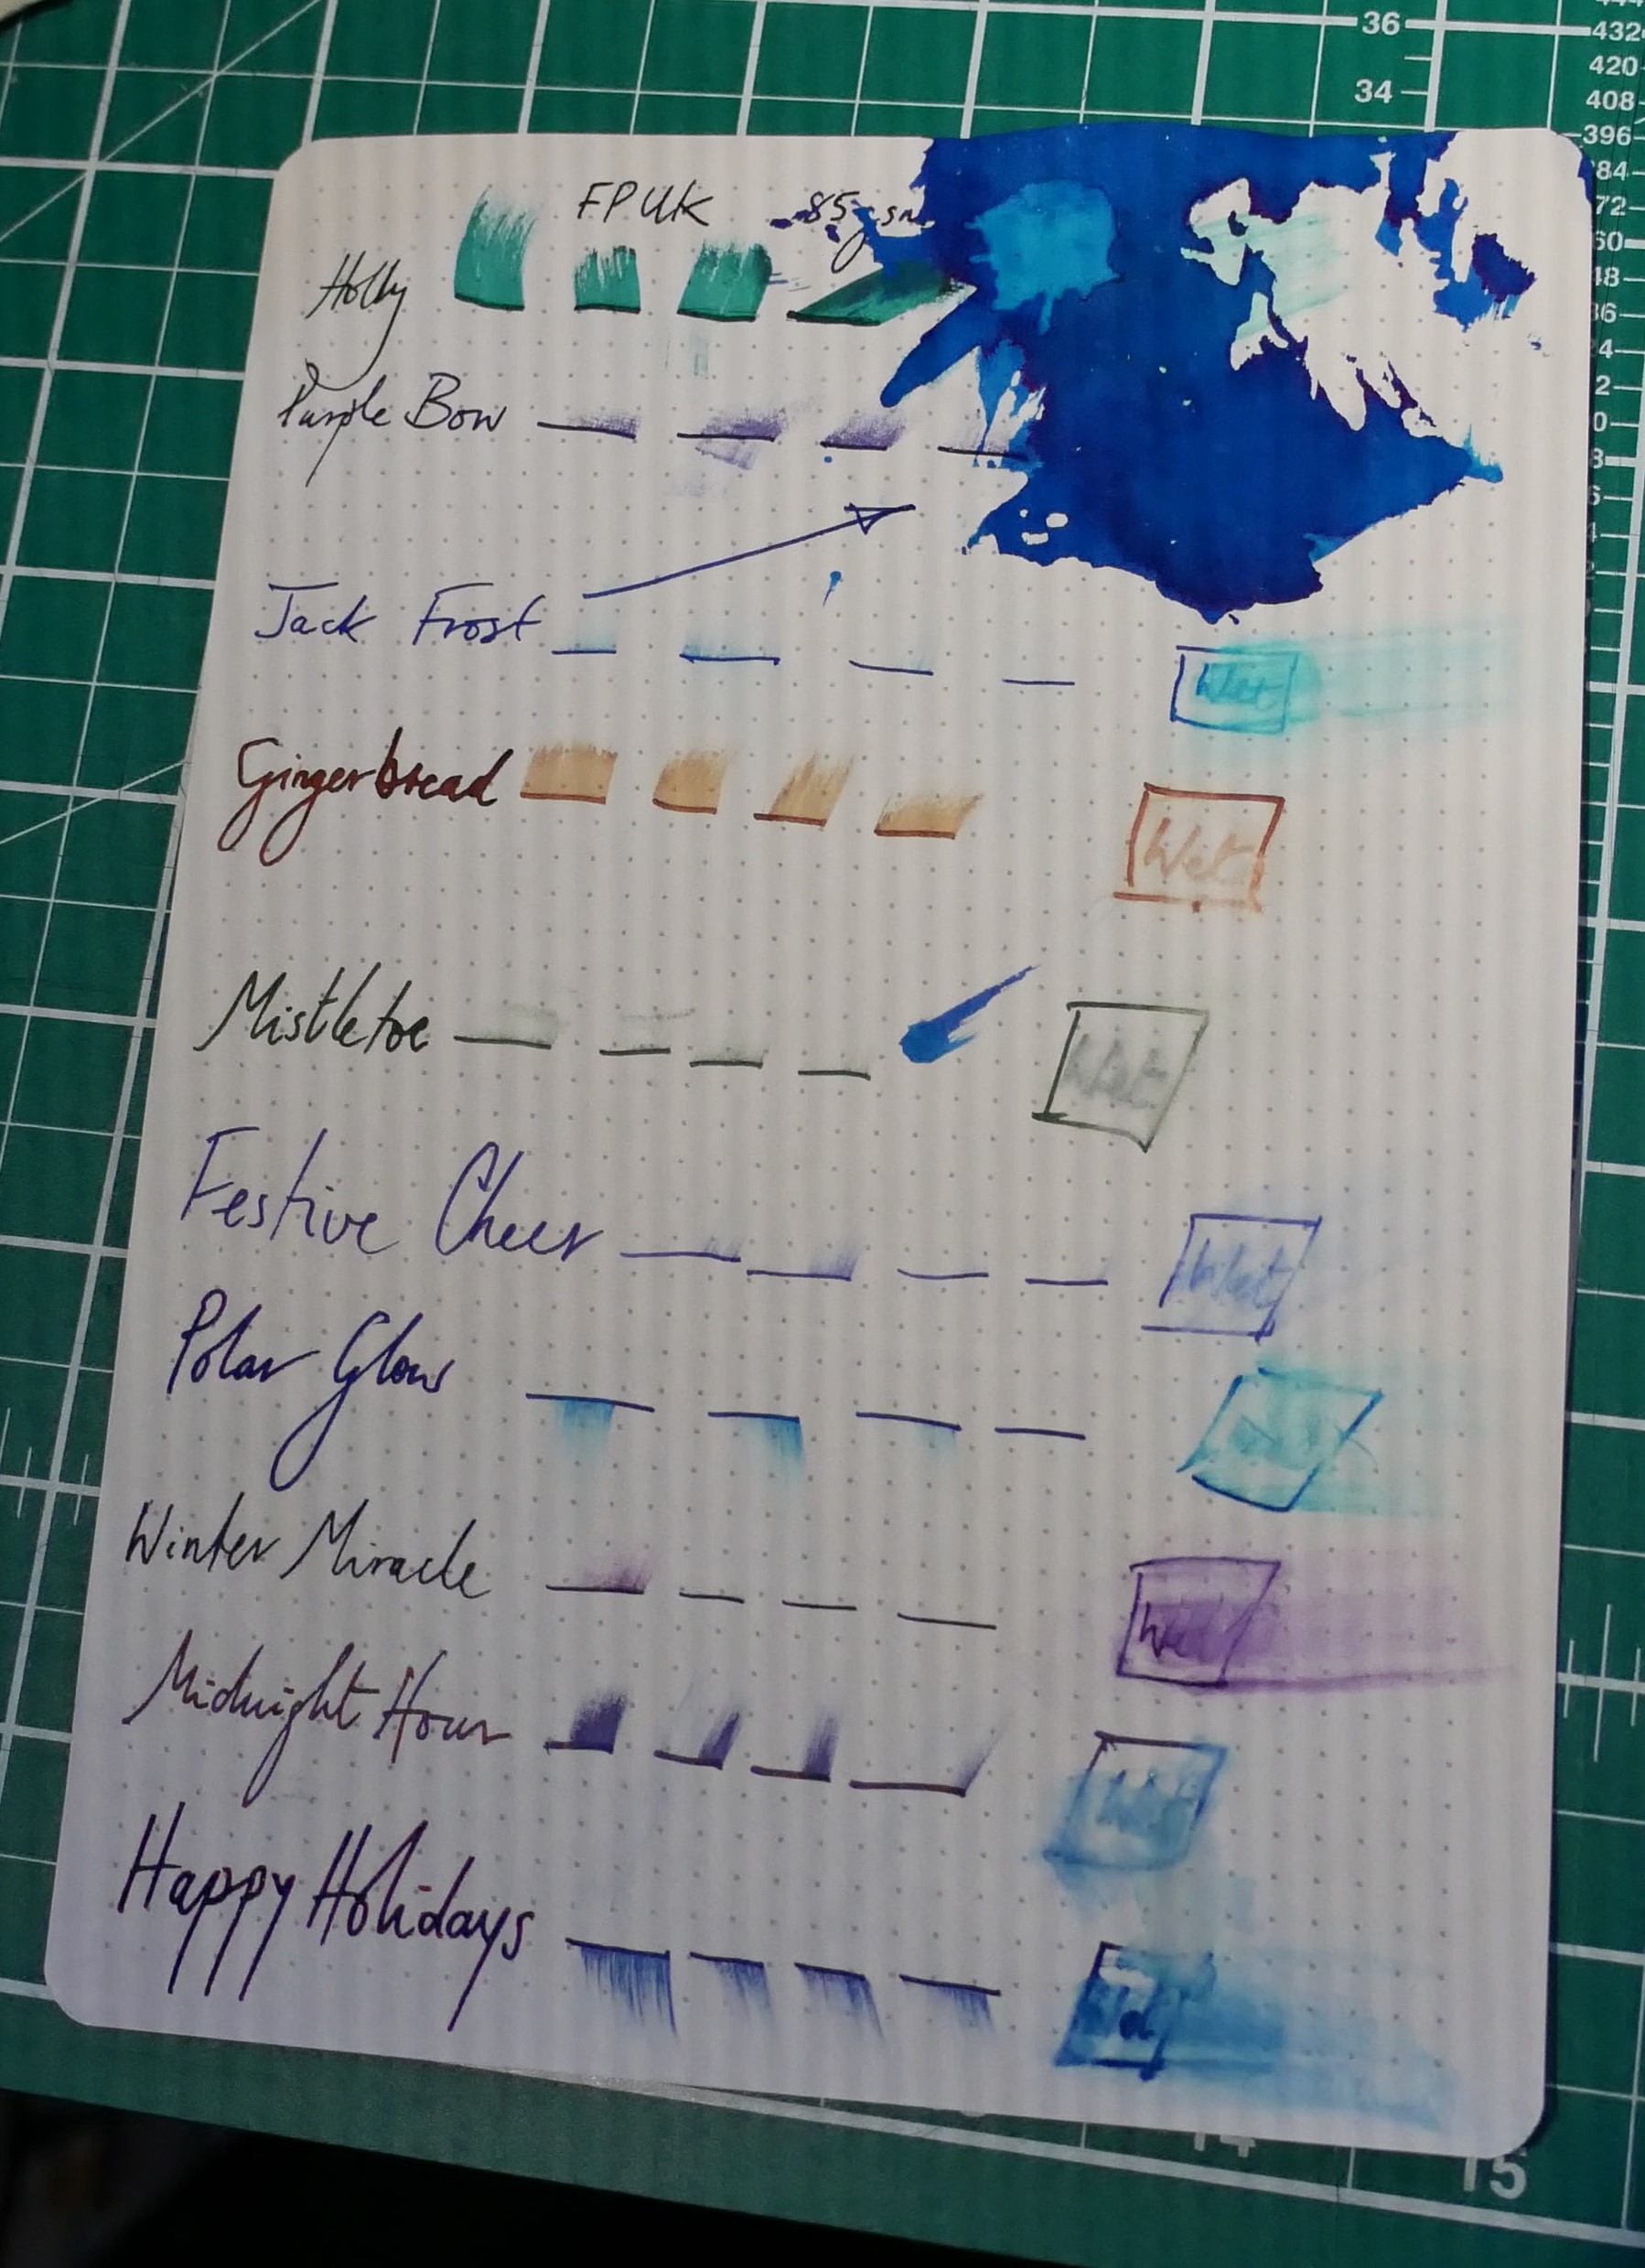 36
432
34
420
408
396
FPUK 85gsm
84
72
60
48
36
Holly
Purple Bow
Jack Frost Wet
Gingerbread Wet
Mistletoe Wet
Festive Cheer Wet
Polar Glow
Winter Miracle Wet
Midnight Hour Wet
Happy Holidays Wet
14
15